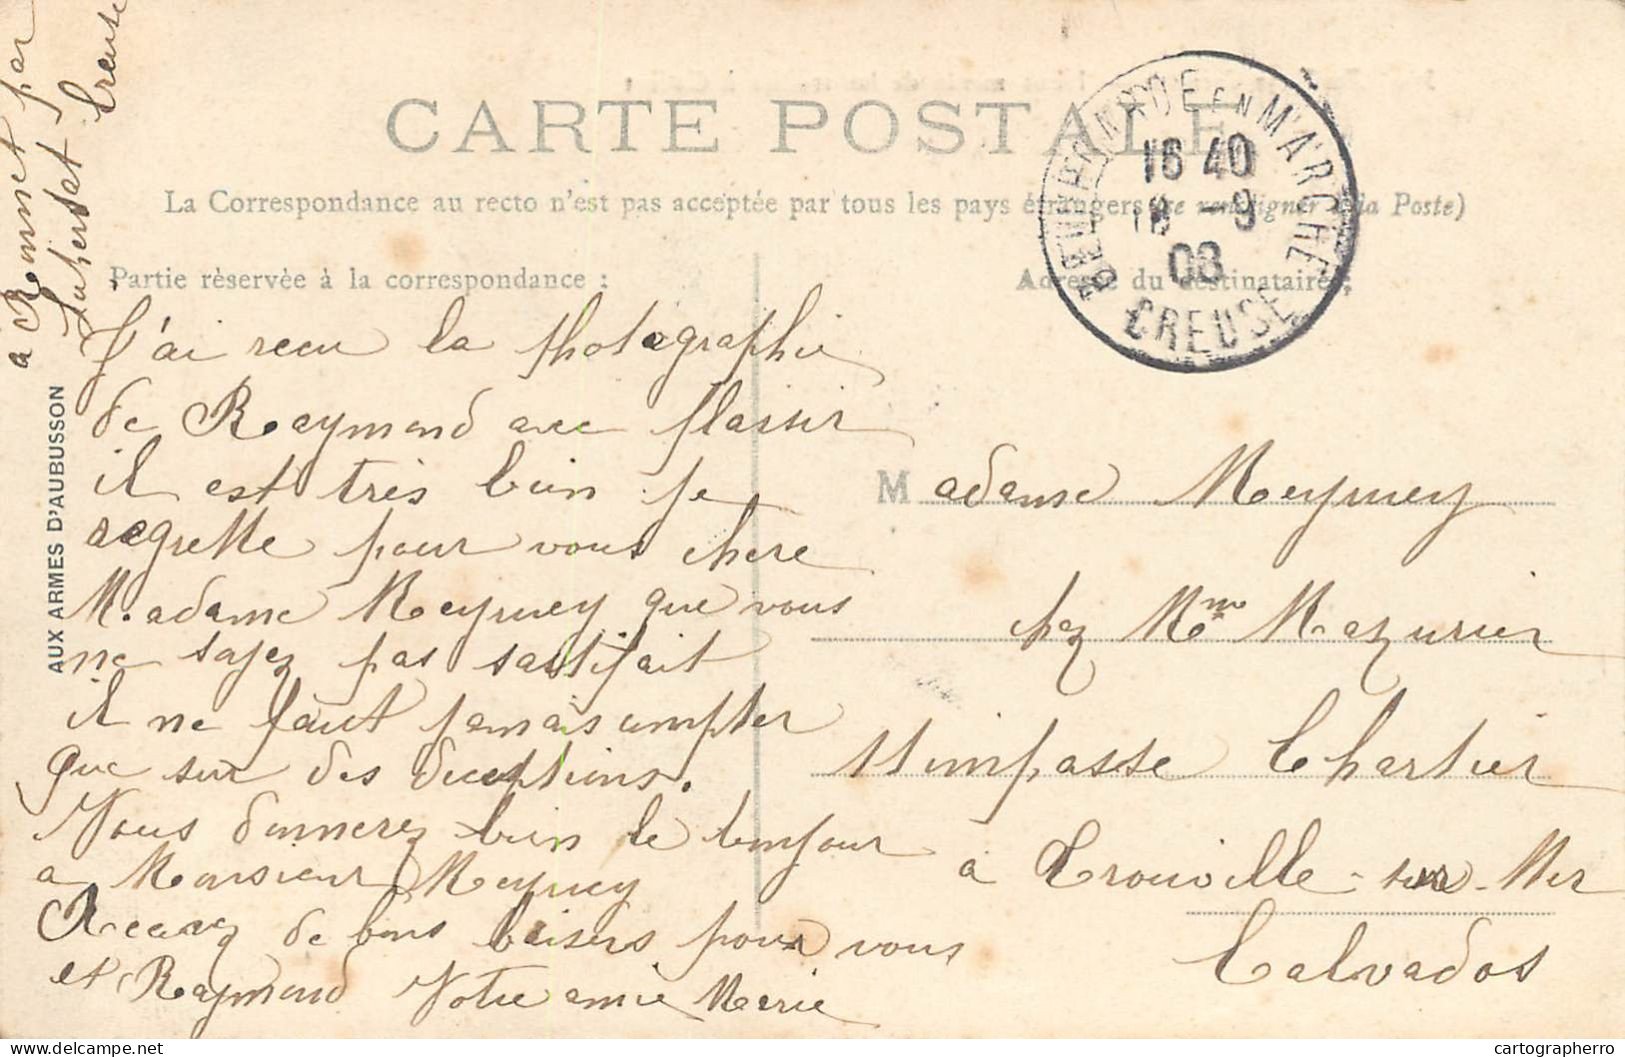 CARTE POSTALE
La Correspondance au recto n'est pas acceptée par tous les pays étrangers (se renseigner à la Poste)
Partie réservée à la correspondance :
Adresse du destinataire :
EN MARCHE
16 40
-9
08
CREUSE
AUX ARMES D'AUBUSSON
a Monnet par
Creuse
J'ai recu la photographie
de Raymond avec plaisir
il est très bien je
regrette pour vous chere
Madame Meyruey que vous
ne soyez pas sastifait
il ne faut jamais compter
que sur des deceptions.
Vous donnerez bien le bonjour
a Monsieur Meyruey
Recevez de bons baisers pour vous
et Raymond Votre amie Marie
Madame Meyruey
chez Mme Mazurier
11 impasse Chartier
à Trouville-sur-Mer
Calvados
cartographerro